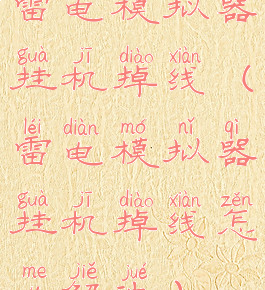 雷电模拟器
guà jī diào xiàn
挂机掉线（
léi diàn mó nǐ qì
雷电模拟器
guà jī diào xiàn zěn
挂机掉线怎
me jiě jué